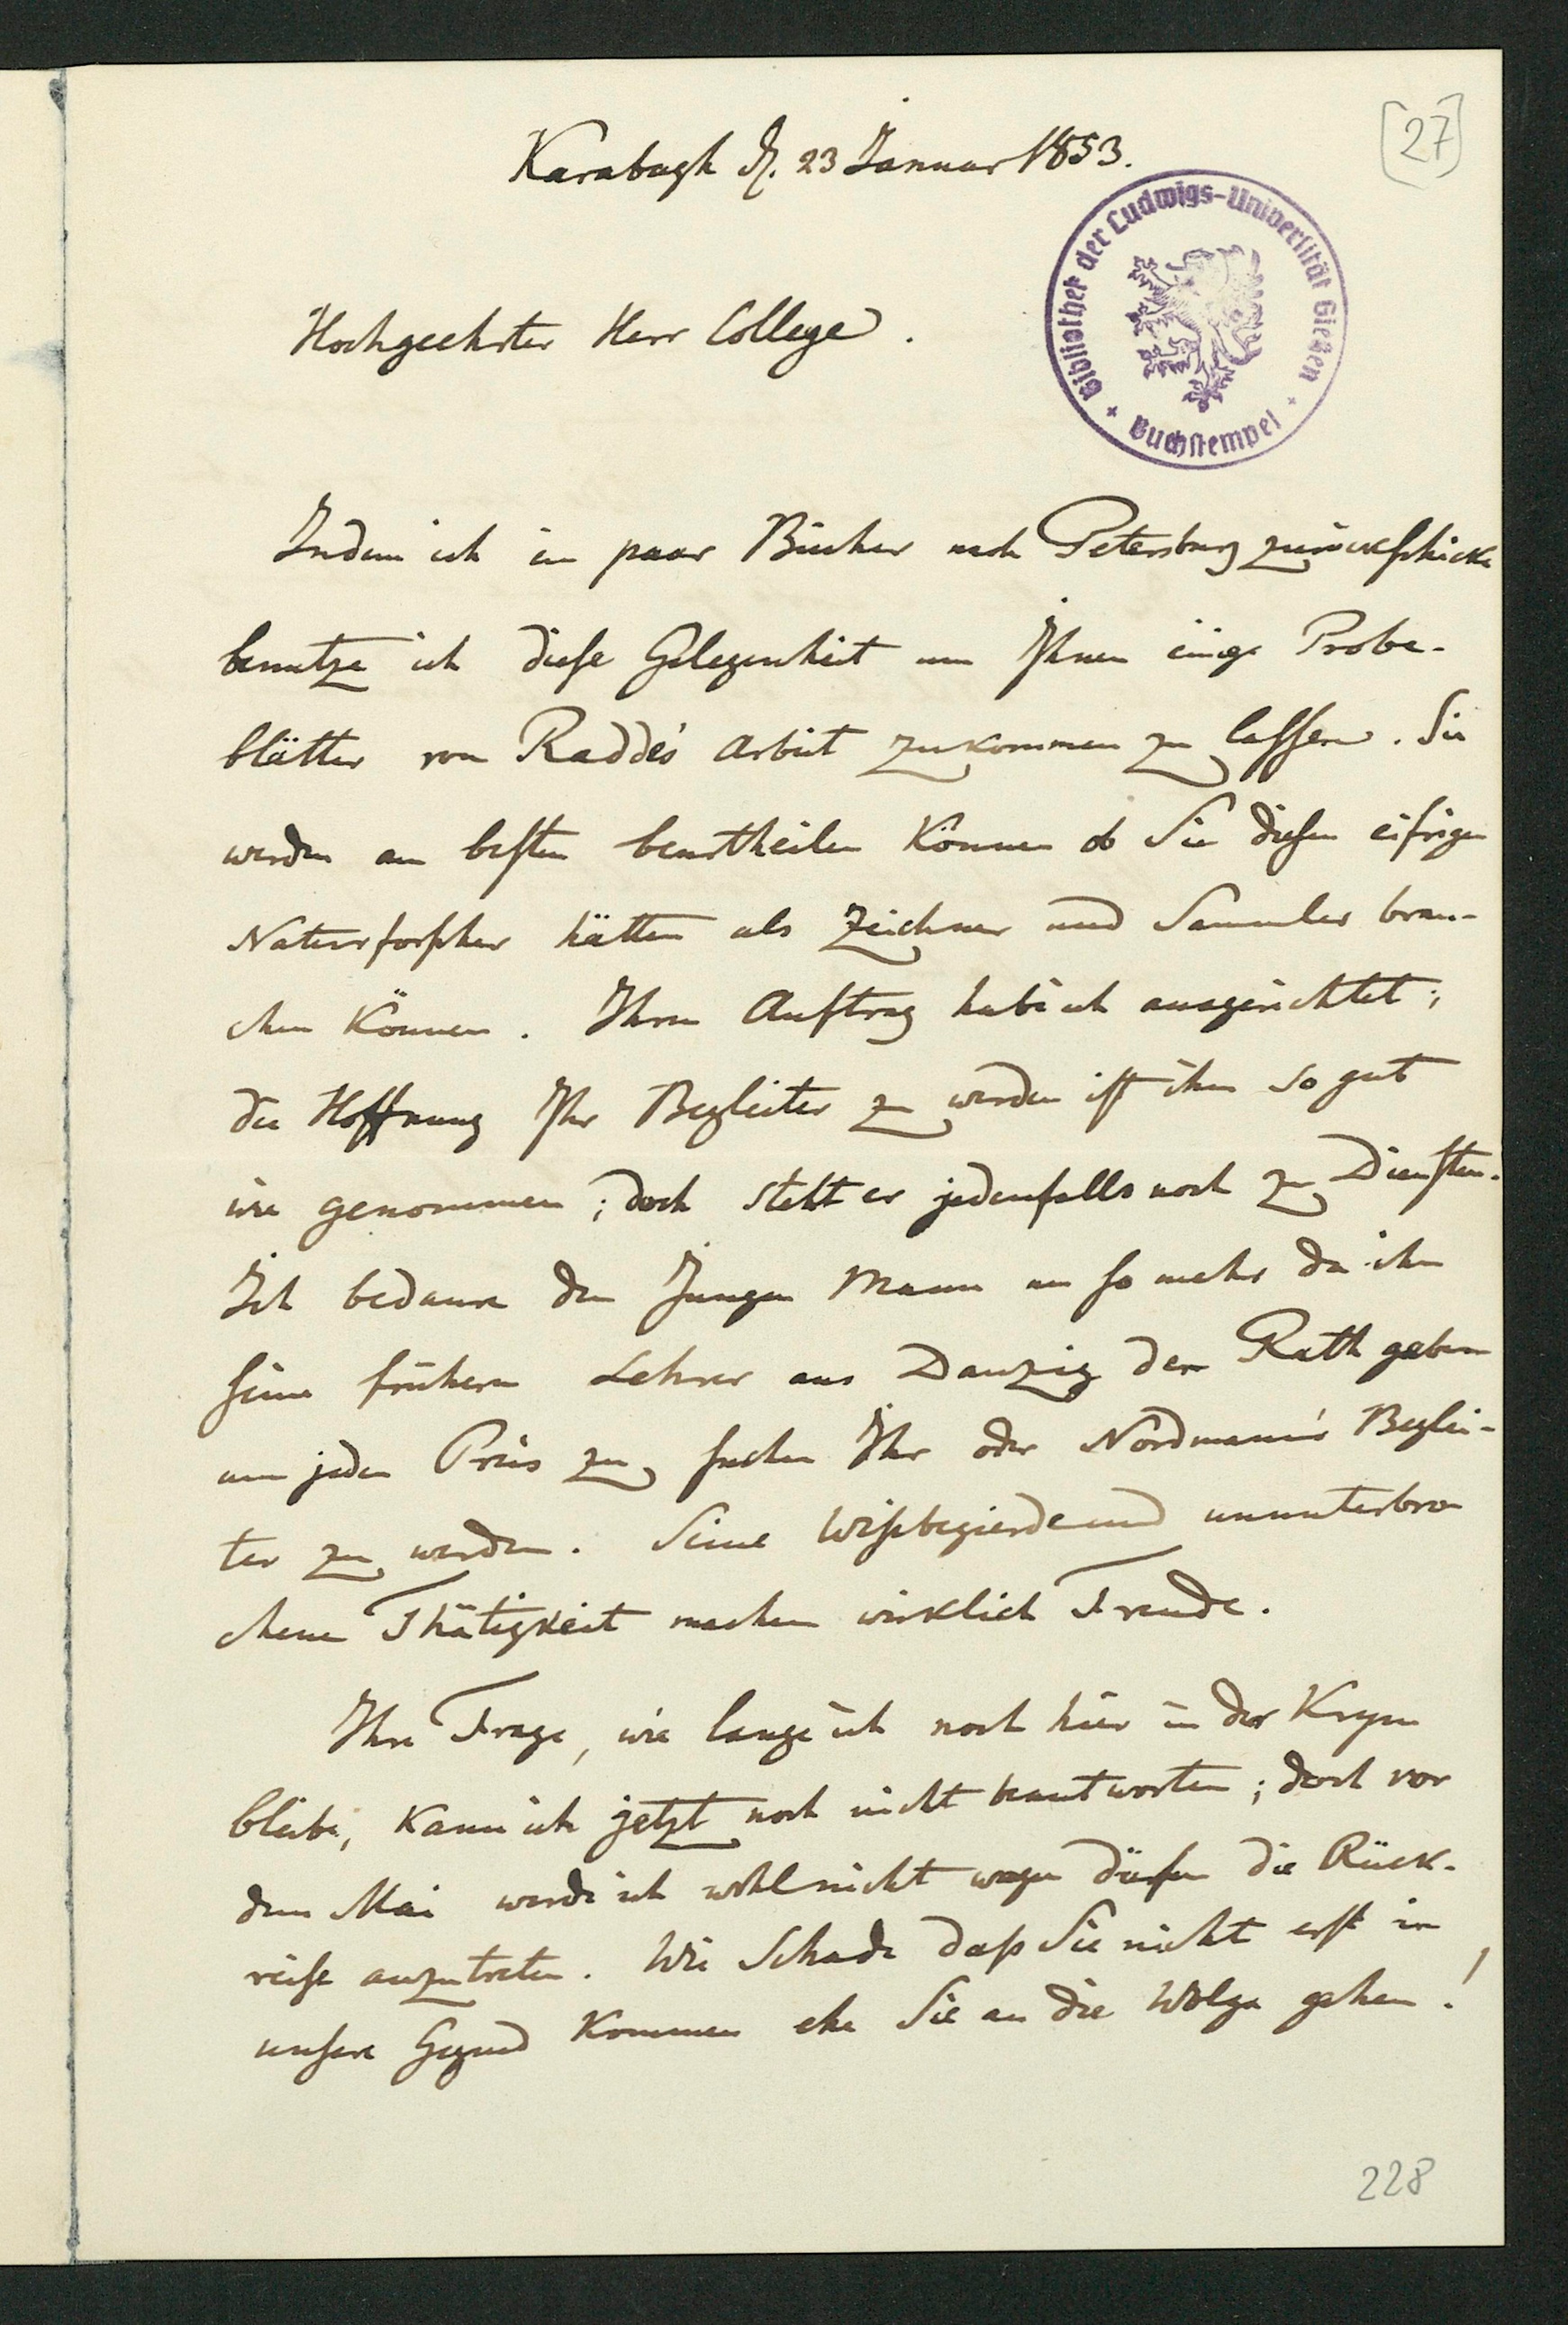 [27]
Karabagh d. 23 Januar 1853.
Bibliothek der Ludwigs-Universität Gießen
Buchstempel
Hochgeehrter Herr College.
Indem ich ein paar Bücher nach Petersburg zurückschicke
benutze ich diese Gelegenheit um Ihnen einige Probe-
blätter von Radde's Arbeit zukommen zu lassen. Sie
werden am besten beurtheilen können ob Sie diesen eifrigen
Naturforscher hätten als Zeichner und Sammler brau-
chen können. Ihren Auftrag habe ich ausgerichtet;
die Hoffnung Ihr Begleiter zu werden ist ihm so gut
wie genommen; doch steht er jedenfalls noch zu Diensten.
Ich bedaure den jungen Mann um so mehr da ihm
seine frühern Lehrer aus Danzig den Rath geben
um jeden Preis zu suchen Ihr oder Nordmann's Beglei-
ter zu werden. Seine Wißbegierde und ununterbro
chene Thätigkeit machen wirklich Freude.
Ihre Frage, wie lange ich noch hier in der Krym
bleibe, kann ich jetzt noch nicht beantworten; doch vor
dem Mai werde ich wohl nicht wagen dürfen die Rück-
reise anzutreten. Wie Schade daß Sie nicht erst in
unsere Gegend kommen ehe Sie an die Wolga gehen!
228